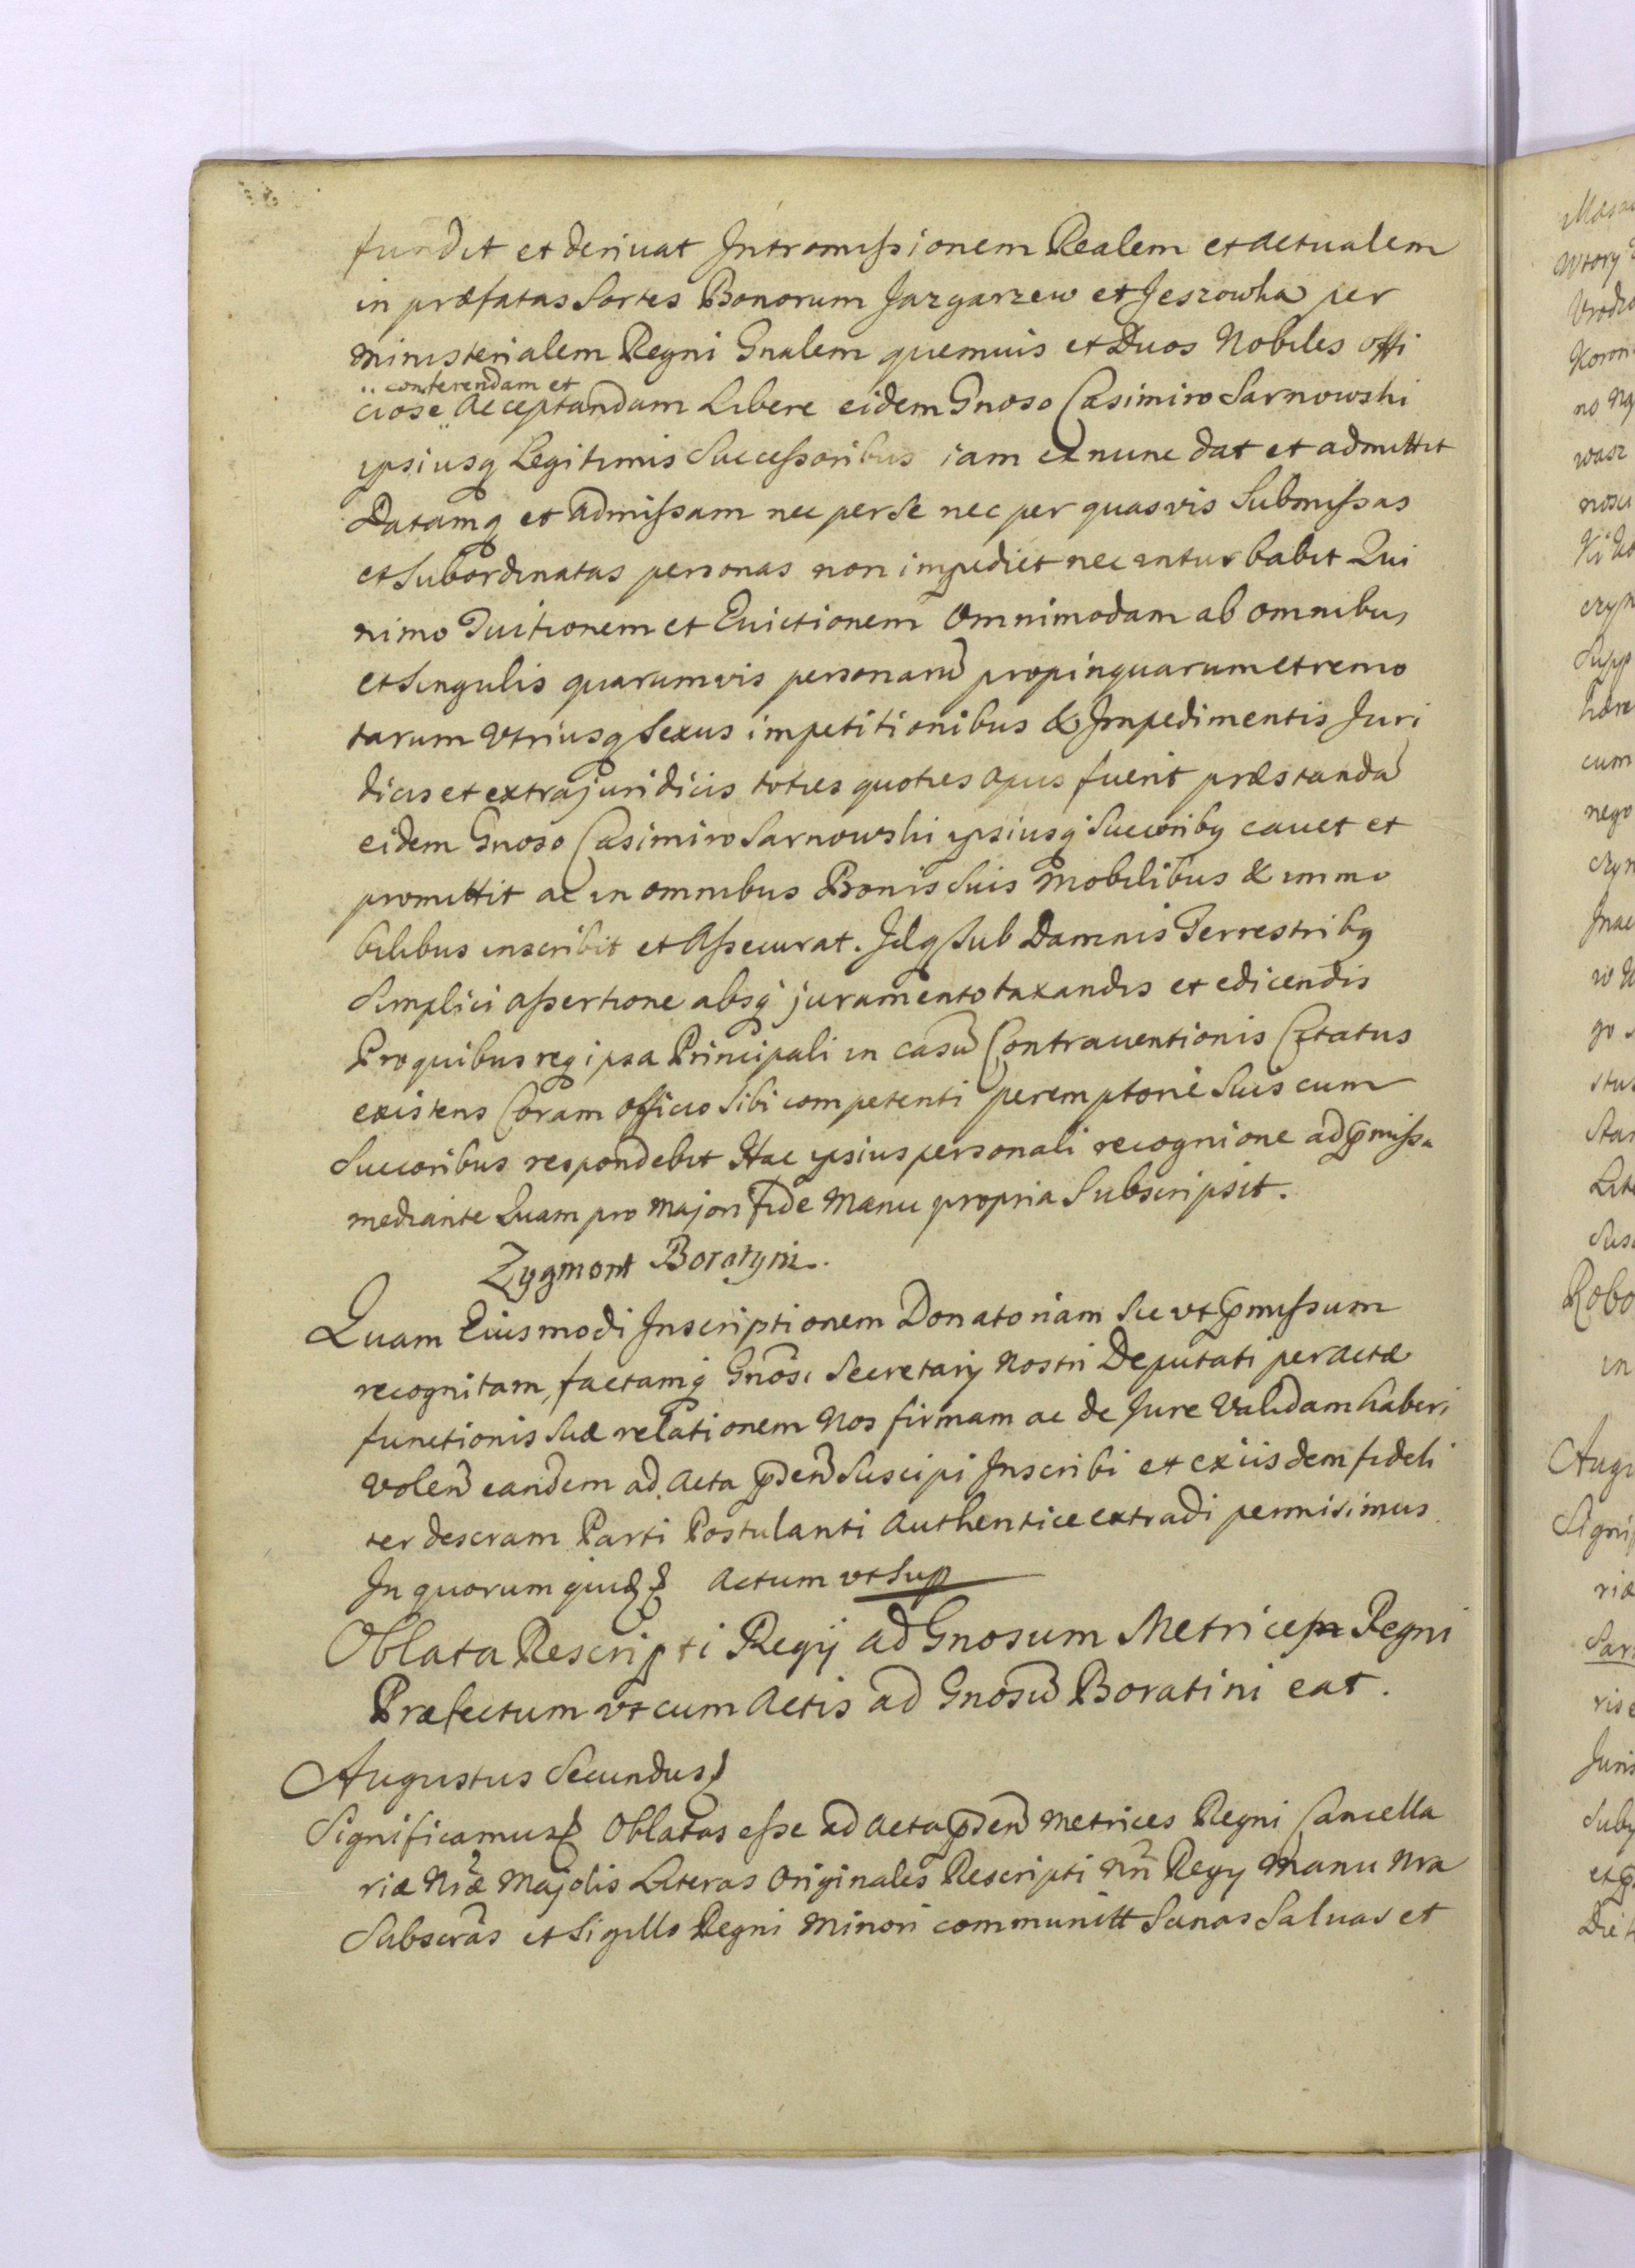 fundit et deriuat Intromissionem Realem et actualem
in præfatas Sortes Bonorum Jazgarzew et Jeszowka per
ministerialem Regni Gnalem quemuis et Duos Nobiles offi
conferendam et
ciose acceptandam Libere eidem Gnoso Casimiro Sarnowski
ipsiusq Legitimis Successoribus iam ex nunc dat et admittit
Datamq et admissam nec per se nec per quasvis Submissas
et Subordinatas personas non impediet nec inturbabit Qui
nimo Tuitionem et Euictionem omnimodam ab omnibus
et Singulis quarumvis personarũ propinquarum et remo
tarum Vtriusq Sexus impetitionibus & Impedimentis Juri
dicis et extrajuridicis toties quoties opus fuerit præstandã
eidem Gnoso Casimiro Sarnowski ipsiusq Succoribq cauet et
promittit ac in omnibus Bonis Suis mobilibus & immo
bilibus inscribit et Assecurat. Idq Sub Damnis Terrestribq
Simplici assertione absq juramento taxandis et edicendis
Pro quibus req ipsa Principali in casũ Contrauentionis Citatus
existens Coram officio Sibi competenti peremptorie Suis cum
Succoribus respondebit Hac ipsius personali recognione ad p̃missa
mediante Quam pro majori fide Manu propria Subscripsit.
Zygmont Boratyni.
Quam Eiusmodi Inscriptionem Donatoriam Sic vt p̃missum
recognitam, factamq Gnõsi Secretarij Nostri Deputati peractæ
functionis Suæ relationem Nos firmam ac de Jure Validam haberi
volen̄ eandem ad acta p̃den̄ Suscipi Inscribi et exiisdem fideli
ter descram Parti Postulanti Authentice extradi permisimus
In quorum Actum vt Sup
Oblata Rescripti Regij ad Gnosum Metrices Regni
Præfectum vt cum Actis ad Gnosũ Boratini eat.
Augustus Secundus
Significamus Oblatas esse ad acta p̃den̄ Metrices Regni Cancella
riæ Nr̃æ Majolis Literas Originales Rescripti Nr̃i Regy Manu Nra
Subscrãs et Sigillo Regni Minori communitt Sanas Saluas et